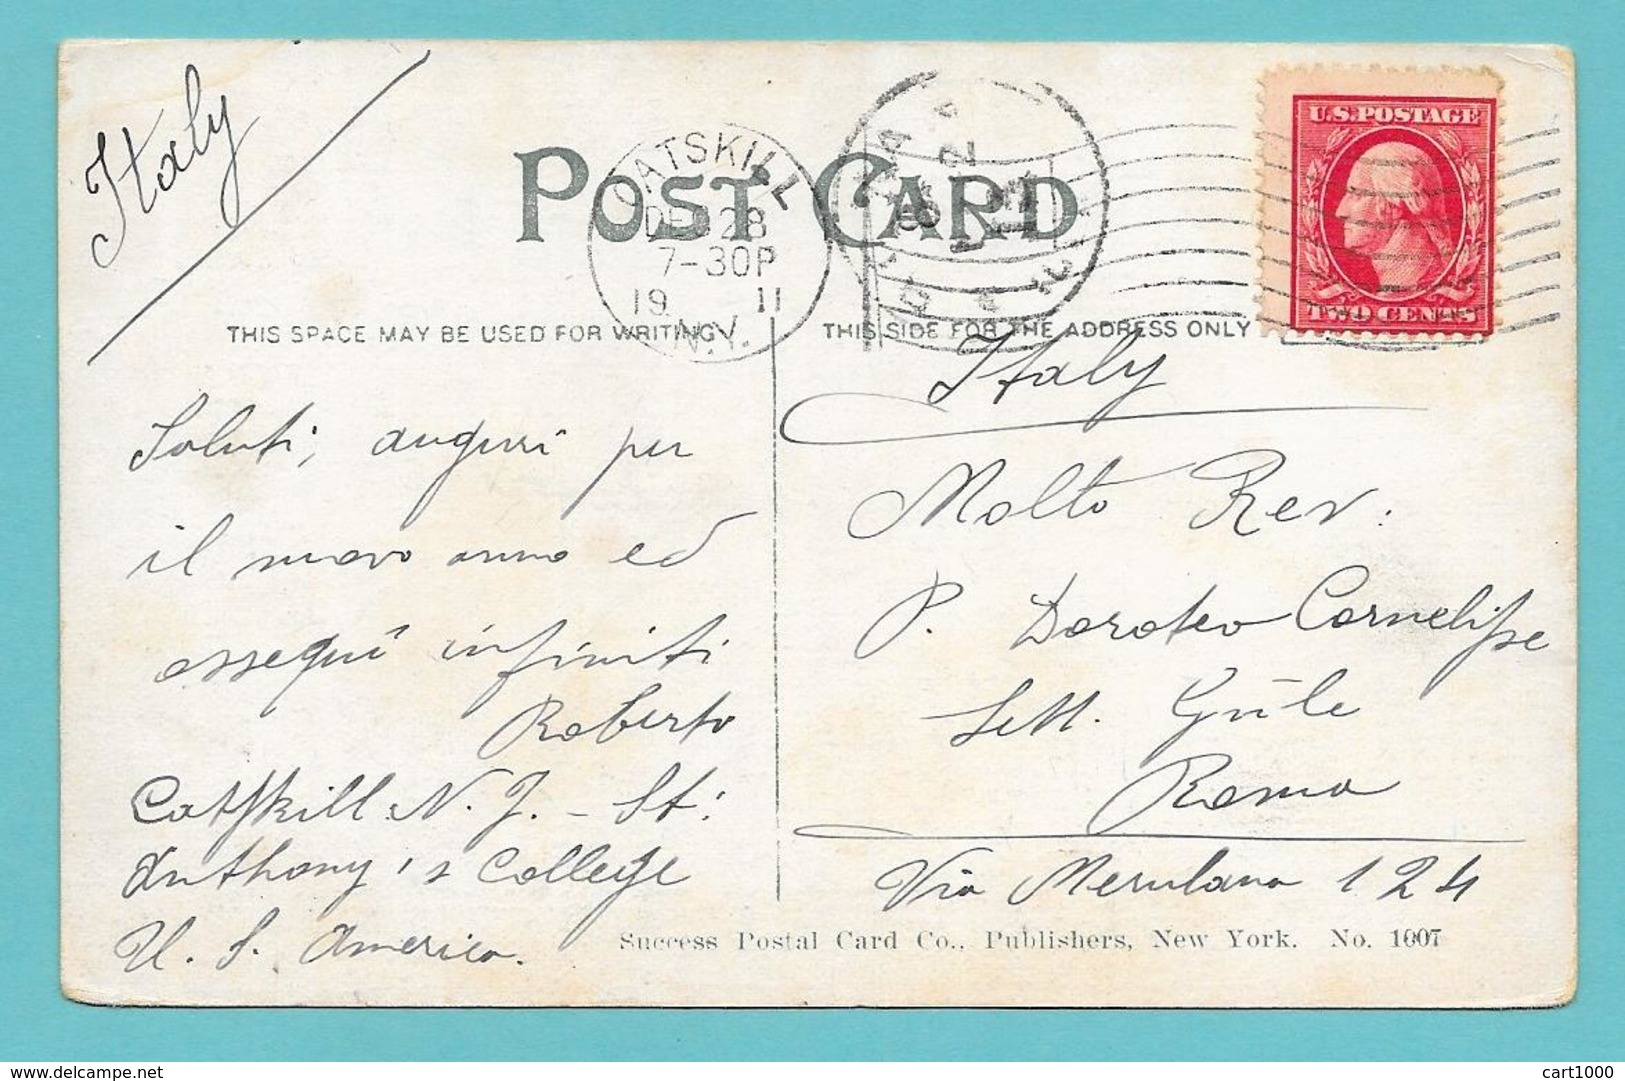 Italy
POST CARD
CATSKILL
DEC 28
7-30P
19 11
N.Y.
U.S. POSTAGE
TWO CENTS
THIS SPACE MAY BE USED FOR WRITING
THIS SIDE FOR THE ADDRESS ONLY
Saluti, auguri per
il nuovo anno ed
ossequi infiniti
Roberto
Catskill N. J. - St.
Anthony's College
U. S. America.
Italy
Molto Rev.
P. Doroteo Cornelisse
Roma
Via Merulana 124
Success Postal Card Co., Publishers, New York. No. 1007
https://www.delcampe.net
cart1000